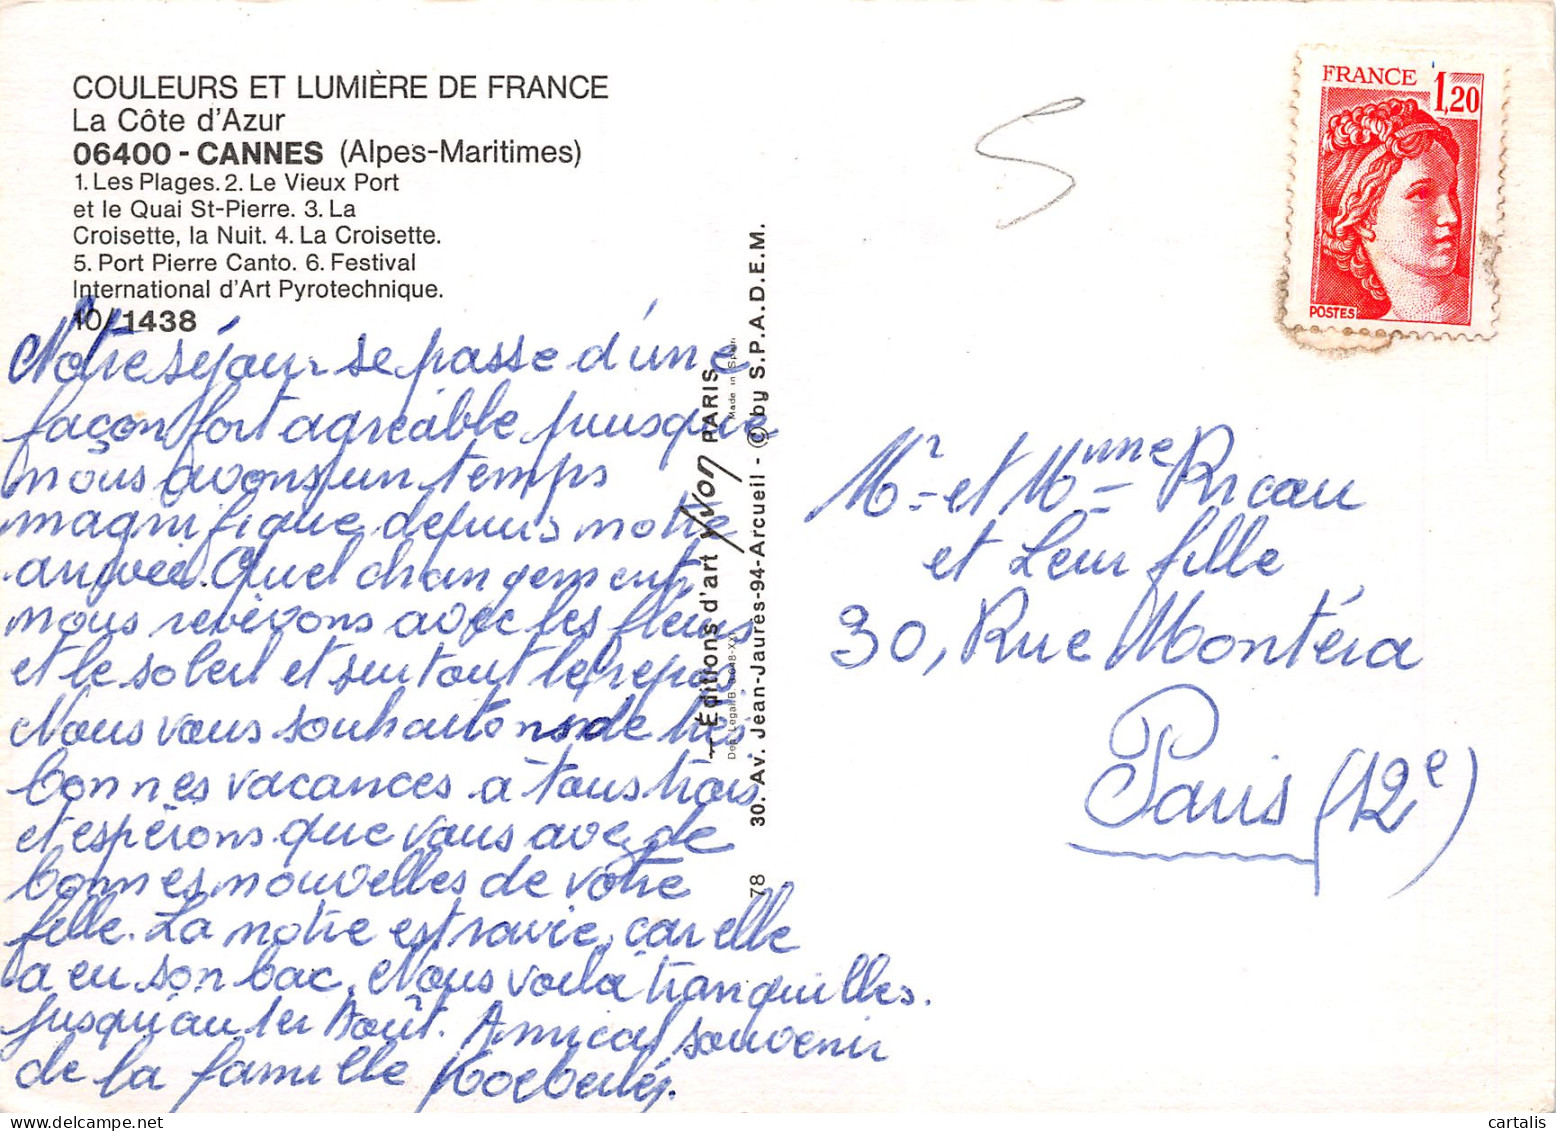 COULEURS ET LUMIÈRE DE FRANCE
La Côte d'Azur
06400 - CANNES (Alpes-Maritimes)
1. Les Plages. 2. Le Vieux Port
et le Quai St-Pierre. 3. La
Croisette, la Nuit. 4. La Croisette.
5. Port Pierre Canto. 6. Festival
International d'Art Pyrotechnique.
10/1438
Notre séjour se passe d'une
façon fort agréable puisque
nous avons un temps
magnifique depuis notre
arrivée. Quel changement,
nous revivons avec les fleurs
et le soleil et surtout le repos.
Nous vous souhaitons de très
bonnes vacances à tous trois
et espérons que vous avez de
bonnes nouvelles de votre
fille. La notre est ravie, car elle
a eu son bac. Nous voilà tranquilles.
jusqu'au 1er Août. Amical souvenir
de la famille
Éditions d'art YVON PARIS
Made in Spain
78 30. Av. Jean-Jaurès-94-Arcueil - © by S.P.A.D.E.M.
5
FRANCE 1,20
POSTES
Mr et Mme Ricau
et Leur fille
30, Rue Montéra
Paris (12e)
cartalis